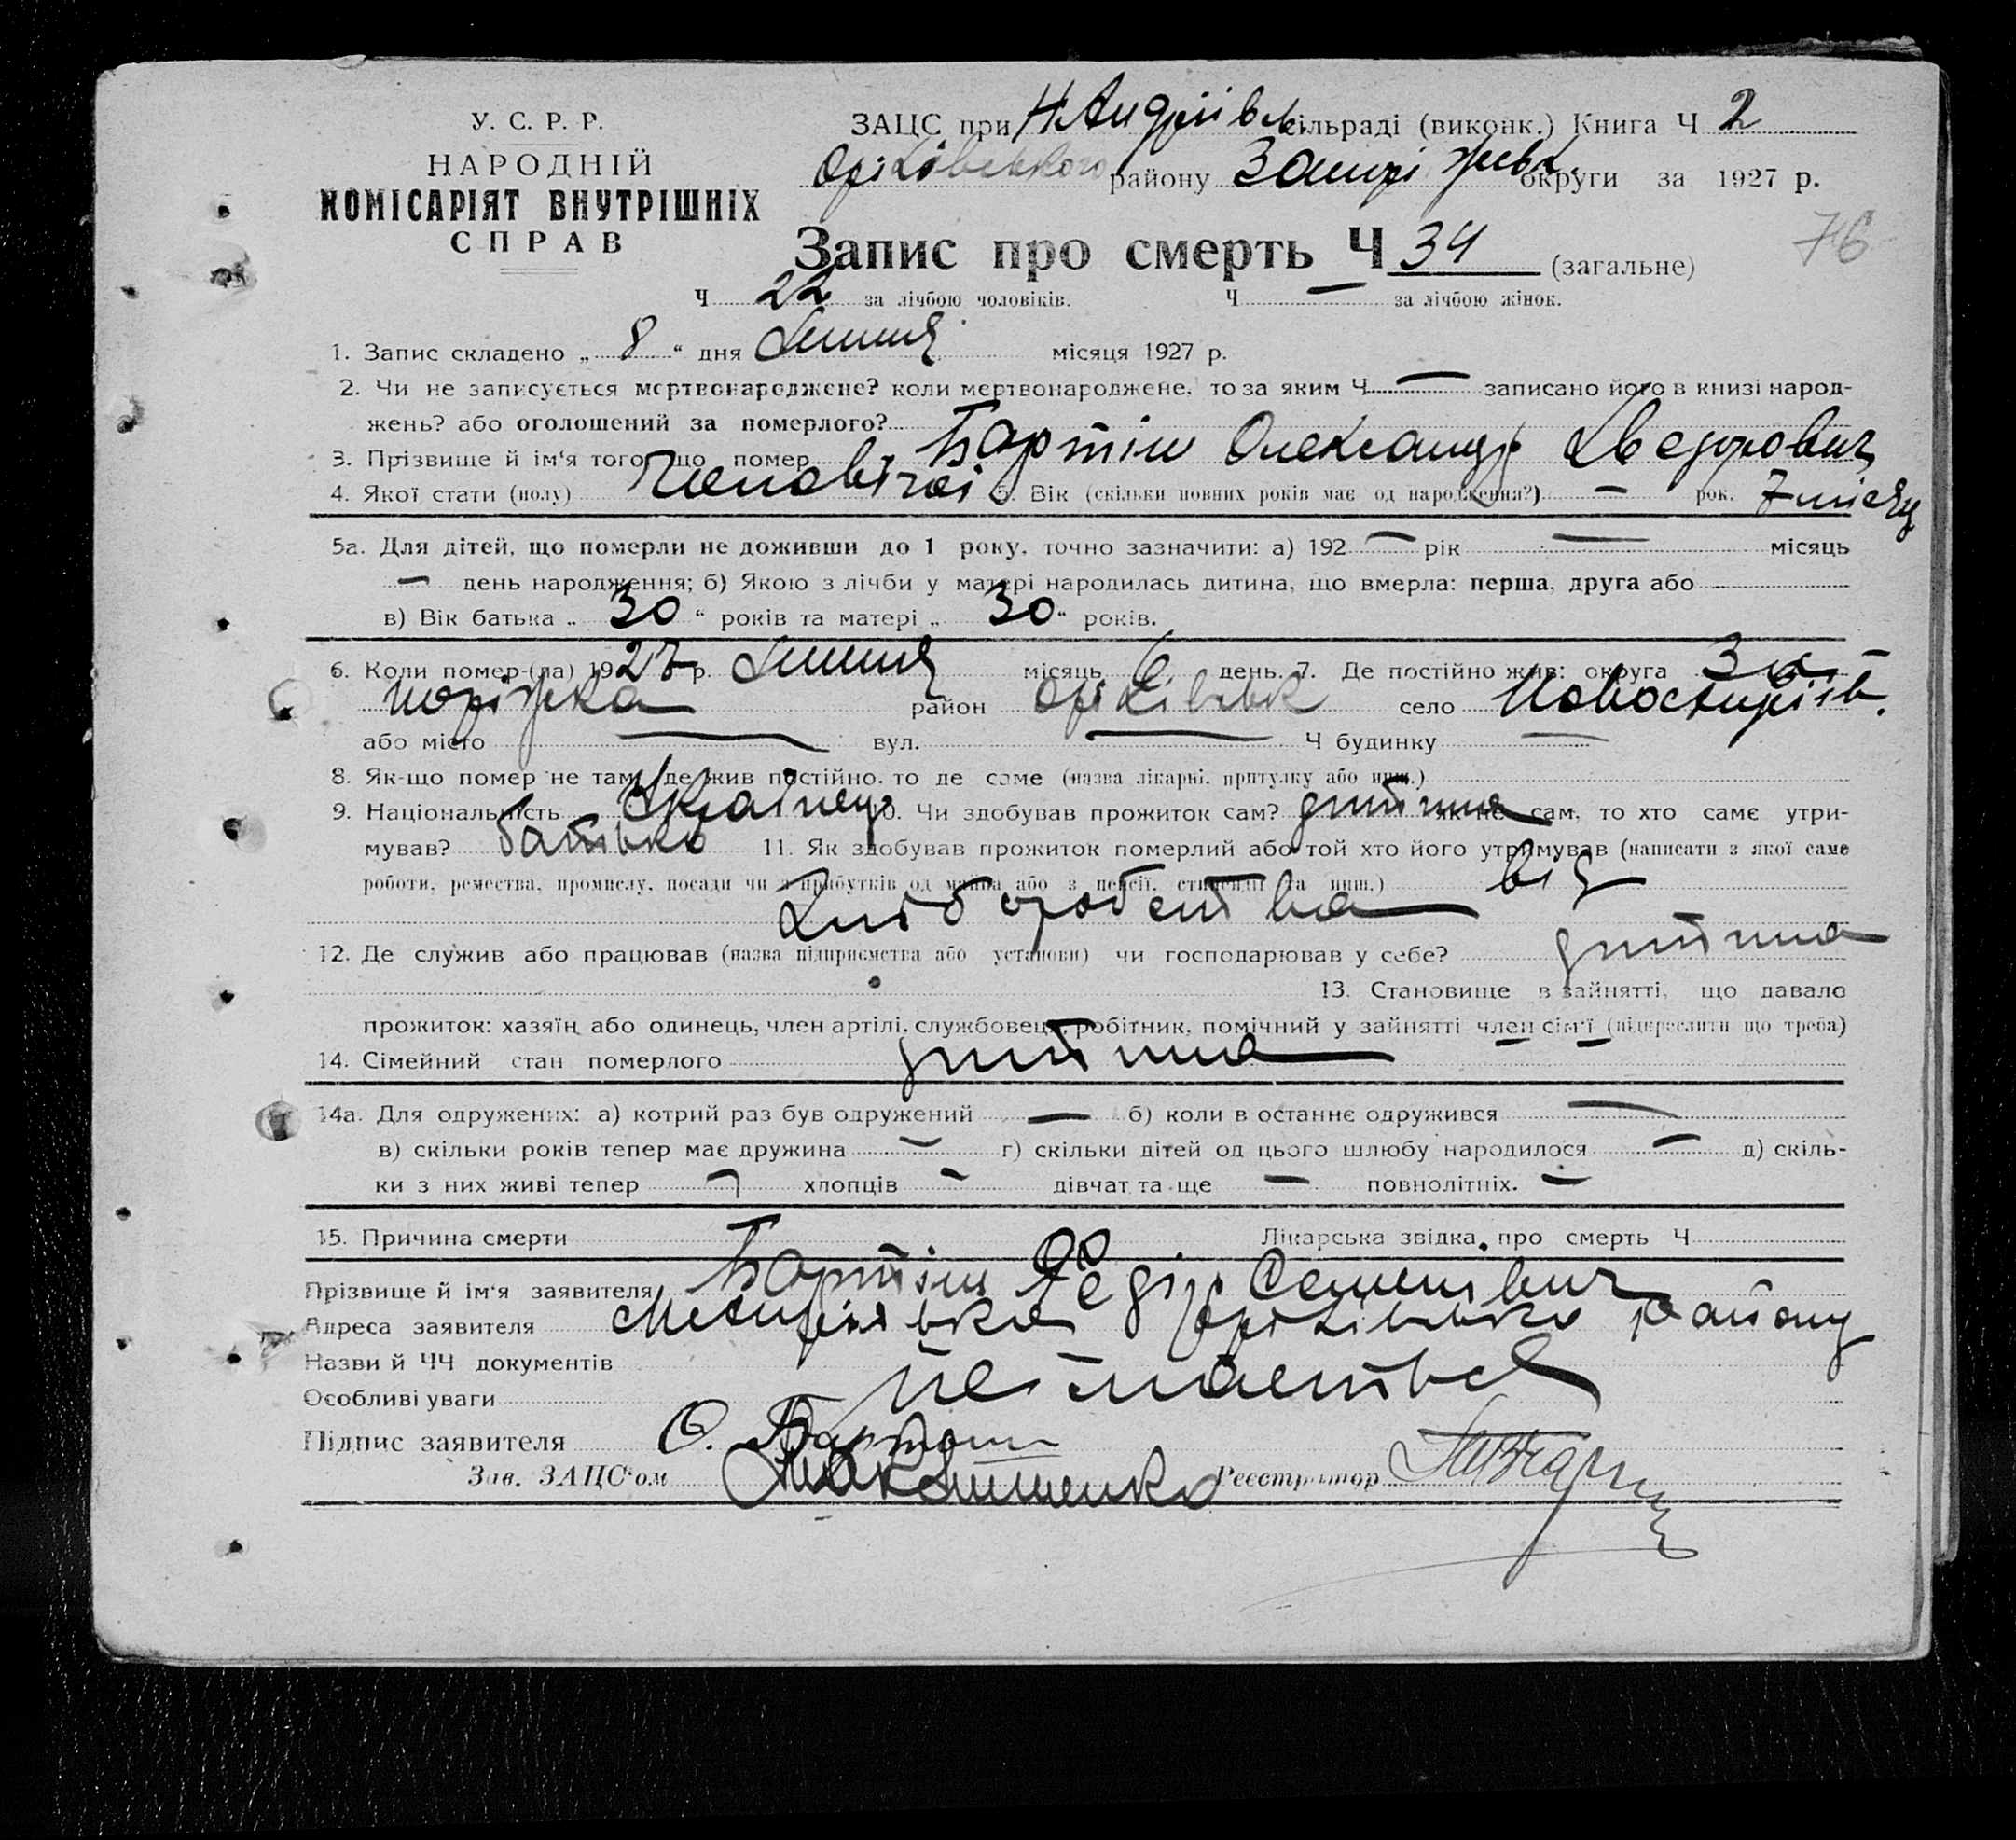 У. С. Р. Р.
НАРОДНІЙ
КОМІСАРІЯТ ВНУТРІШНІХ
СПРАВ
ЗАЦС при Н Андріївськ. сільраді (виконк.) Книга Ч 2
Оріхівського району Запоріжськ. округи за 1927 р.
76
Запис про смерть Ч 34 (загальне)
Ч 22 за лічбою чоловіків. Ч — за лічбою жінок.
1. Запис складено „ 8 “ дня Липня місяця 1927 р.
2. Чи не записується мертвонароджене? коли мертвонароджене, то за яким Ч — записано його в книзі народ-
жень? або оголошений за померлого?
3. Прізвище й ім'я того, що помер Олександр
4. Якої стати (полу) 5. Вік (скільки повних років має од народження?) — рок. 7 місяц
5а. Для дітей, що померли не доживши до 1 року, точно зазначити: а) 192 — рік — місяць
— день народження; б) Якою з лічби у матері народилась дитина, що вмерла: перша, друга або
в) Вік батька „ 30 “ років та матері „ 30 “ років.
6. Коли помер-(ла) 1927 р. Липня місяць 6 день. 7. Де постійно жив: округа За-
поріжка район Оріхівськ село
або місто — вул. — Ч будинку —
8. Як-що помер не там, де жив постійно, то де саме (назва лікарні, притулку або инш.)
9. Національність Українец 10. Чи здобував прожиток сам? дитина як не сам, то хто саме утри-
мував? батько 11. Як здобував прожиток померлий або той хто його утримував (написати з якої саме
роботи, ремества, промислу, посади чи з прибутків од майна або з пенсії, стипендії та инш.) від
Хліборобства
12. Де служив або працював (назва підприємства або установи) чи господарював у себе? дитина
13. Становище в зайнятті, що давало
прожиток: хазяїн, або одинець, член артілі, службовець, робітник, помічний у зайнятті член сім'ї (підкреслити що треба)
14. Сімейний стан померлого дитина
14а. Для одружених: а) котрий раз був одружений — б) коли в останнє одружився —
в) скільки років тепер має дружина — г) скільки дітей од цього шлюбу народилося — д) скіль-
ки з них живі тепер — хлопців — дівчат та ще — повнолітніх. —
15. Причина смерти Лікарська звідка про смерть Ч
Прізвище й ім'я заявителя Федір Семенович
Адреса заявителя району
Назви й ЧЧ документів
Особливі уваги не мается
Підпис заявителя
Зав. ЗАЦС'ом Реєстратор